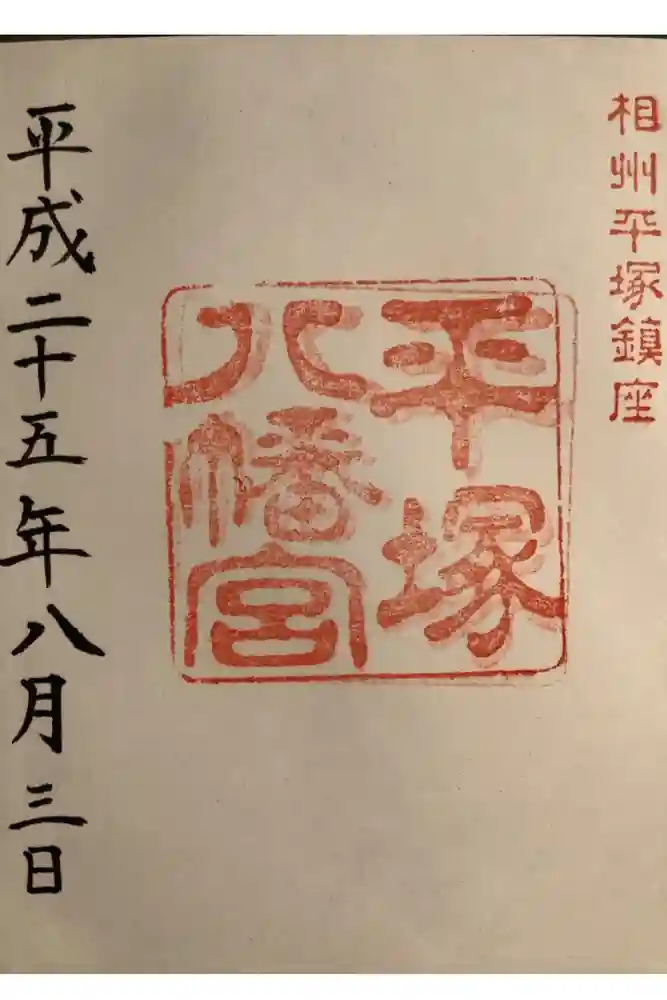 相州平塚鎮座
平塚
八幡宮
平成二十五年八月三日